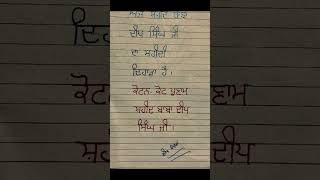 ਅੱਜ ਸ਼ਹੀਦ ਬਾਬਾ
ਦੀਪ ਸਿੰਘ ਜੀ
ਦਾ ਸ਼ਹੀਦੀ
ਦਿਹਾੜਾ ਹੈ।
ਕੋਟਨ-ਕੋਟ ਪ੍ਰਣਾਮ
ਸ਼ਹੀਦ ਬਾਬਾ ਦੀਪ
ਸਿੰਘ ਜੀ।